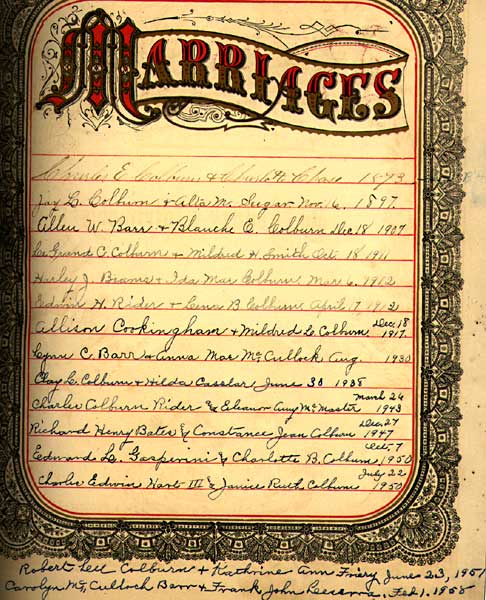 MARRIAGES
Charles E Colburn & Charlotte Chase 1873
Jay L. Colburn & Alta M. Sugar Nov. 16, 1897
Allen W. Barr & Blanche E. Colburn Dec 18 1907
Le Grand C. Colburn & Mildred H. Smith Oct. 18 1911
Harley J. Beams & Ida Mae Colburn Mar. 6, 1912
Edwin H. Rider & B Colburn April 17 1912
Allison Cookingham & Mildred L. Colburn Dec. 18 1917
Lynn C. Barr & Anna Mae McCullock Aug 1930
Clay L. Colburn & Hilda Casslar June 30 1938
Charles Colburn Rider & Eleanor Amy McMaster March 26 1943
Richard Henry Bates & Constance Jean Colburn Dec. 27 1947
Edward L. Gasperini & Charlotte B. Colburn Oct. 7 1950
Charles Edwin Hart III & Janice Ruth Colburn July 22 1950
Robert Lee Colburn & Kathrine Ann Friery June 23, 1951
Carolyn McCulloch Barr & Frank John Feb 1. 1958